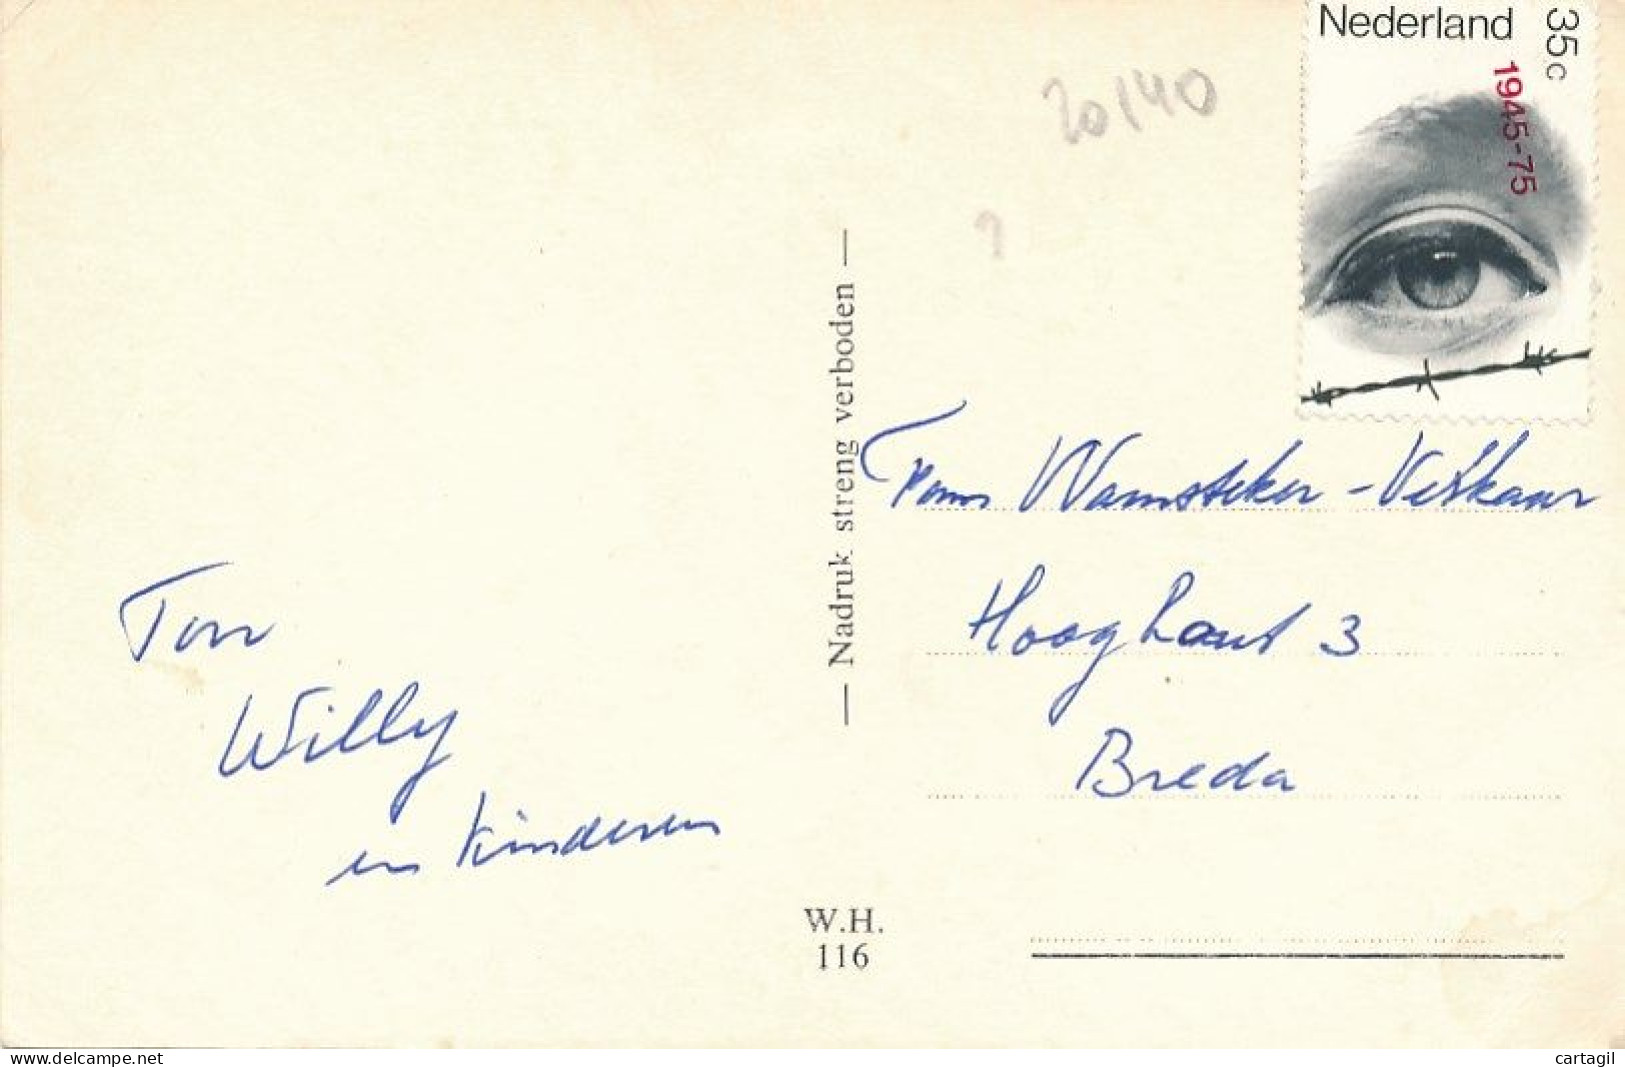 Nederland
35c
1945-75
20/40
1
— Nadruk streng verboden —
Fam Wamsteker-Verkaar
Hooghout 3
Breda
Ton
Willy
en kinderen
W.H.
116
www.delcampe.net
cartagil